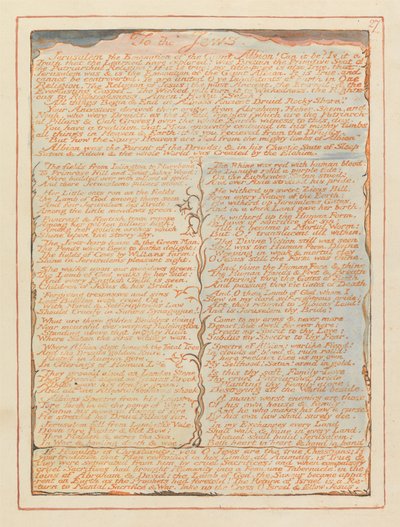 27
To the Jews.
Jerusalem the Emanation of the Giant Albion! Can it be? Is it a
Truth that the Learned have explored? Was Britain the Primitive Seat of
the Patriarchal Religion? If it is true: my title-page is also True, that
Jerusalem was & is the Emanation of the Giant Albion. It is True, and
cannot be controverted. Ye are united O ye Inhabitants of Earth in One
Religion. The Religion of Jesus: the most Ancient, the Eternal: & the
Everlasting Gospel—The Wicked will turn it to Wickedness, the Righte-
ous to Righteousness. Amen! Huzza! Selah!
All things Begin & End in Albions Ancient Druid Rocky Shore.
Your Ancestors derived their origin from Abraham, Heber, Shem, and
Noah, who were Druids: as the Druid Temples (which are the Patriarchal
Pillars & Oak Groves) over the whole Earth witness to this day.
You have a tradition, that Man anciently containd in his mighty limbs
all things in Heaven & Earth: this you recieved from the Druids.
But now the Starry Heavens are fled from the mighty limbs of Albion
Albion was the Parent of the Druids; & in his Chaotic State of Sleep
Satan & Adam & the whole World was Created by the Elohim.
The fields from Islington to Marybone,
To Primrose Hill and Saint Johns Wood:
Were builded over with pillars of gold,
And there Jerusalems pillars stood.
Her Little-ones ran on the fields
The Lamb of God among them seen
And fair Jerusalem his Bride:
Among the little meadows green.
Pancrass & Kentish-town repose
Among her golden pillars high:
Among her golden arches which
Shine upon the starry sky.
The Jews-harp-house & the Green Man;
The Ponds where Boys to bathe delight:
The fields of Cows by Willans farm:
Shine in Jerusalems pleasant sight.
She walks upon our meadows green:
The Lamb of God walks by her side:
And every English Child is seen,
Children of Jesus & his Bride,
Forgiving trespasses and sins
Lest Babylon with cruel Og,
With Moral & Self-righteous Law
Should Crucify in Satans Synagogue!
What are those golden Builders doing
Near mournful ever-weeping Paddington
Standing above that mighty Ruin
Where Satan the first victory won.
Where Albion slept beneath the Fatal Tree
And the Druids golden Knife,
Rioted in human gore,
In Offerings of Human Life
They groan'd aloud on London Stone
They groan'd aloud on Tyburns Brook
Albion gave his deadly groan,
And all the Atlantic Mountains shook
Albions Spectre from his Loins
Tore forth in all the pomp of War!
Satan his name: in flames of fire
He stretch'd his Druid Pillars far.
Jerusalem fell from Lambeth's Vale,
Down thro Poplar & Old Bow;
Thro Malden & acros the Sea,
In War & howling death & woe.
The Rhine was red with human blood:
The Danube rolld a purple tide:
On the Euphrates Satan stood:
And over Asia stretch'd his pride.
He witherd up sweet Zions Hill,
From every Nation of the Earth:
He witherd up Jerusalems Gates,
And in a dark Land gave her birth.
He witherd up the Human Form,
By laws of sacrifice for sin:
Till it became a Mortal Worm:
But O! translucent all within.
The Divine Vision still was seen
Still was the Human Form, Divine
Weeping in weak & mortal clay
O Jesus still the Form was thine.
And thine the Human Face & thine
The Human Hands & Feet & Breath
Entering thro' the Gates of Birth
And passing thro' the Gates of Death
And O thou Lamb of God, whom I
Slew in my dark self-righteous pride:
Art thou return'd to Albions Land!
And is Jerusalem thy Bride?
Come to my arms & never more
Depart; but dwell for ever here:
Create my Spirit to thy Love:
Subdue my Spectre to thy Fear.
Spectre of Albion! warlike Fiend!
In clouds of blood & ruin roll'd:
I here reclaim thee as my own
My Selfhood! Satan! armd in gold.
Is this thy soft Family-Love
Thy cruel Patriarchal pride
Planting thy Family alone,
Destroying all the World beside.
A mans worst enemies are those
Of his own house & family;
And he who makes his law a curse,
By his own law shall surely die.
In my Exchanges every Land
Shall walk, & mine in every Land,
Mutual shall build Jerusalem:
Both heart in heart & hand in hand.
If Humility is Christianity; you O Jews are the true Christians; If
your tradition that Man contained in his Limbs, all Animals, is True & they
were separated from him by cruel Sacrifices: and when compulsory
cruel Sacrifices had brought Humanity into a Feminine Tabernacle, in the
loins of Abraham & David: the Lamb of God, the Saviour became appa-
rent on Earth as the Prophets had foretold? The Return of Israel is a Re-
turn to Mental Sacrifice & War. Take up the Cross O Israel & follow Jesus.